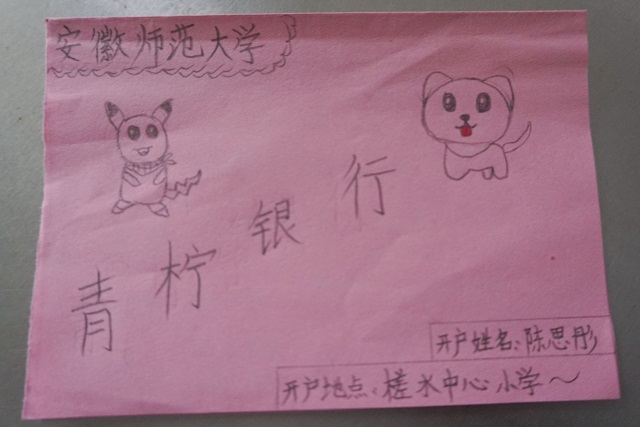 安徽师范大学
青柠银行
开户姓名:陈思彤
开户地点:槎水中心小学~